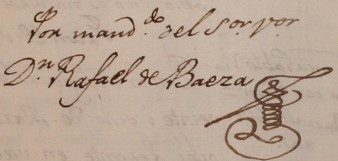 Por mand.do del S.or Gor.
D.n Rafael de Baeza